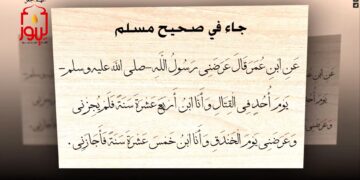 ليبون
جاء في صحيح مسلم
عَن ابنِ عُمَرَ قَالَ عَرَضَنِي رَسُولُ اللَّهِ -صلى الله عليه وسلم-
يَومَ أُحُدٍ فِي القِتَالِ وَأَنَا ابنُ أَربَعَ عَشرَةَ سَنَةً فَلَم يُجِزنِي
وَعَرَضَنِي يَومَ الخَندَقِ وَأَنَا ابنُ خَمسَ عَشرَةَ سَنَةً فَأَجَازَنِي.